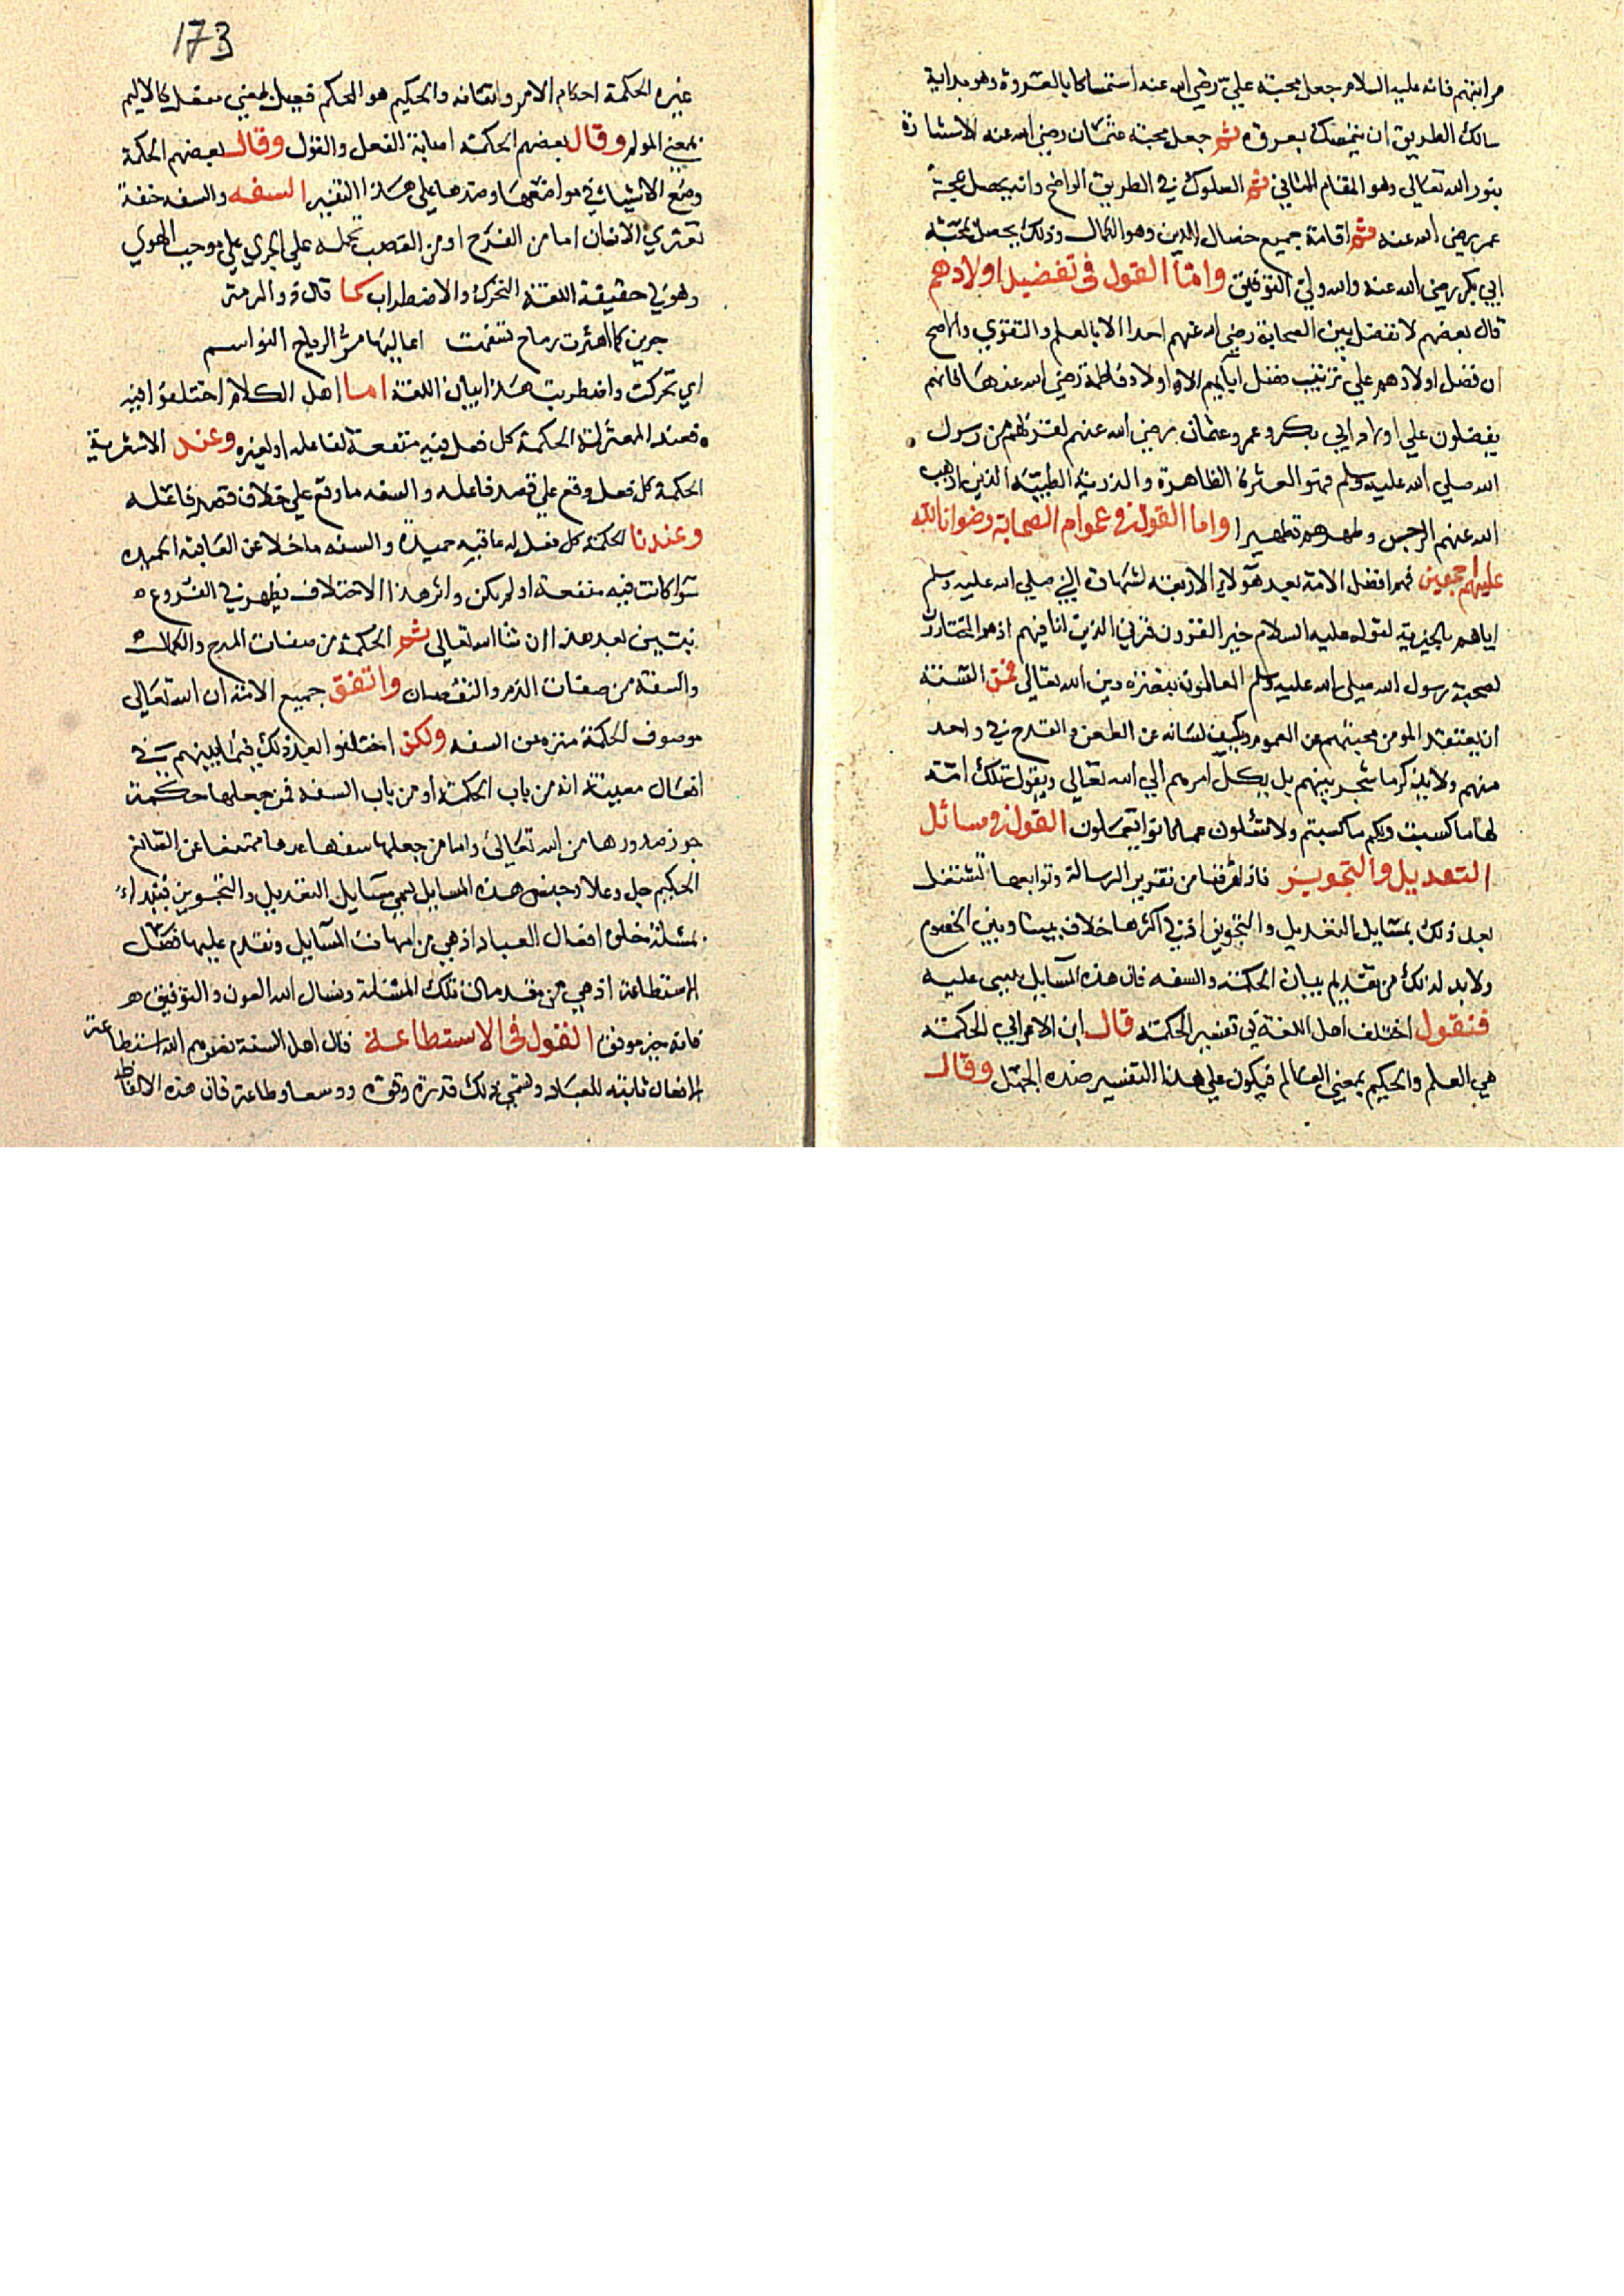 مراتبهم فانه عليه السلام جعل محبة علي رضي الله عنه استمساكا بالعروة وهو بداية
سالك الطريق ان يتمسك بعروة ثم جعل محبة عثمان رضي الله عنه الاستنارة
بنور الله تعالى وهو المقام الثاني ثم السلوك في الطريق الواضح وانه يحصل بمحبة
عمر رضي الله عنه ثم اقامة جميع خصال الدين وهو الكمال وذلك يحصل بمحبة
ابي بكر رضي الله عنه والله ولي التوفيق واما القول في تفضيل اولادهم
قال بعضهم لا نفضل بين الصحابة رضي الله عنهم احدا الا بالعلم والتقوي والاصح
ان فضل اولادهم علي ترتيب فضل ابايهم الا اولاد فاطمة رضي الله عنها فانهم
يفضلون علي اولاد ابي بكر وعمر وعثمان رضي الله عنهم لقربهم من رسول
الله صلي الله عليه وسلم فهم العترة الطاهرة والذرية الطيبة الذين اذهب
الله عنهم الرجس وطهرهم تطهيرا واما القول في عوام الصحابة رضوان الله
عليهم اجمعين فهم افضل الامة بعد هولاي الاربعة لشهادة النبي صلي الله عليه وسلم
اياهم بالخيرية لقوله عليه السلام خير القرون قرني الذين انا فيهم اذ هم المختارون
لصحبة رسول الله صلي الله عليه وسلم العالمون بنصرة دين الله تعالي فمن السنة
ان يعتقد المومن محبتهم عن العموم ويكف لسانه عن الطعن والقدح في واحد
منهم ولا يذكر ما شجر بينهم بل يكل امرهم الي الله تعالي ويقول تلك امة
لها ما كسبت ولكم ما كسبتم ولا تسئلون عما كانوا يعملون القول في مسائل
التعديل والتجوير فاذ فرغنا من تقرير الرسالة وتوابعها نشتغل
بعد ذلك بمسايل التعديل والتجوير اذ في اكثرها خلاف بيننا وبين الخصوم
ولا بد لذلك من تقديم بيان الحكمة والسفه فان هذه المسايل يبني عليه
فنقول اختلف اهل اللغة في تفسير الحكمة قال ابن الاعرابي الحكمة
هي العلم والحكيم بمعني العالم فيكون علي هذا التفسير ضده الجهل وقال
173
غيره الحكمة احكام الامر واتقانه والحكيم هو المحكم فعيل بمعني مفعل كالاليم
بمعني المولم وقال بعضهم الحكمة اصابة الفعل والقول وقال بعضهم الحكمة
وضع الاشياء في مواضعها وضدها علي هذا التفسير السفه والسفه خفة
تعتري الانسان اما من الفرح او من الغضب تحمله علي الجري علي موجب الهوي
وهو في حقيقة اللغة التحرك والاضطراب كما قال ذو الرمة
جرين كما اهتزت رماح تسفهت اعاليها مر الرياح النواسم
اي تحركت واضطربت هذا بيان اللغة اما اهل الكلام اختلفوا فيه
فعند المعتزلة الحكمة كل فعل فيه منفعة لفاعله او لغيره وعند الاشعرية
الحكمة كل فعل وقع علي قصد فاعله والسفه ما وقع علي خلاف قصد فاعله
وعندنا الحكمة كل فعل له عاقبة حميدة والسفه ما خلا عن العاقبة الحميدة
سوا كانت فيه منفعة او لم يكن واثر هذا الاختلاف يظهر في الفروع
نبين بعد هذا ان شا الله تعالي ثم الحكمة من صفات المدح والكمال
والسفه من صفات الذم والنقصان واتفق جميع الامة ان الله تعالي
موصوف الحكمة منزه عن السفه ولكن اختلفوا بعد ذلك فيما بينهم في
افعال معينة انه من باب الحكمة او من باب السفه فمن جعلها حكمة
جوز صدورها من الله تعالي واما من جعلها سفها عدها ممتنعا عن الصانع
الحكيم جل وعلا وجنس هذه المسايل يسمي مسايل التعديل والتجوير فنبداء
بمسئلة خلق افعال العباد اذ هي من امهات المسايل ونقدم عليها فصل
الاستطاعة اذ هي من مقدمات تلك المسئلة ونسال الله العون والتوفيق
فانه خير موفق القول في الاستطاعة قال اهل السنة نصرهم الله استطاعة
الافعال ثابتة للعباد وتسمي ذلك قدرة وقوة ووسعا وطاعة فان هذه الالفاظ